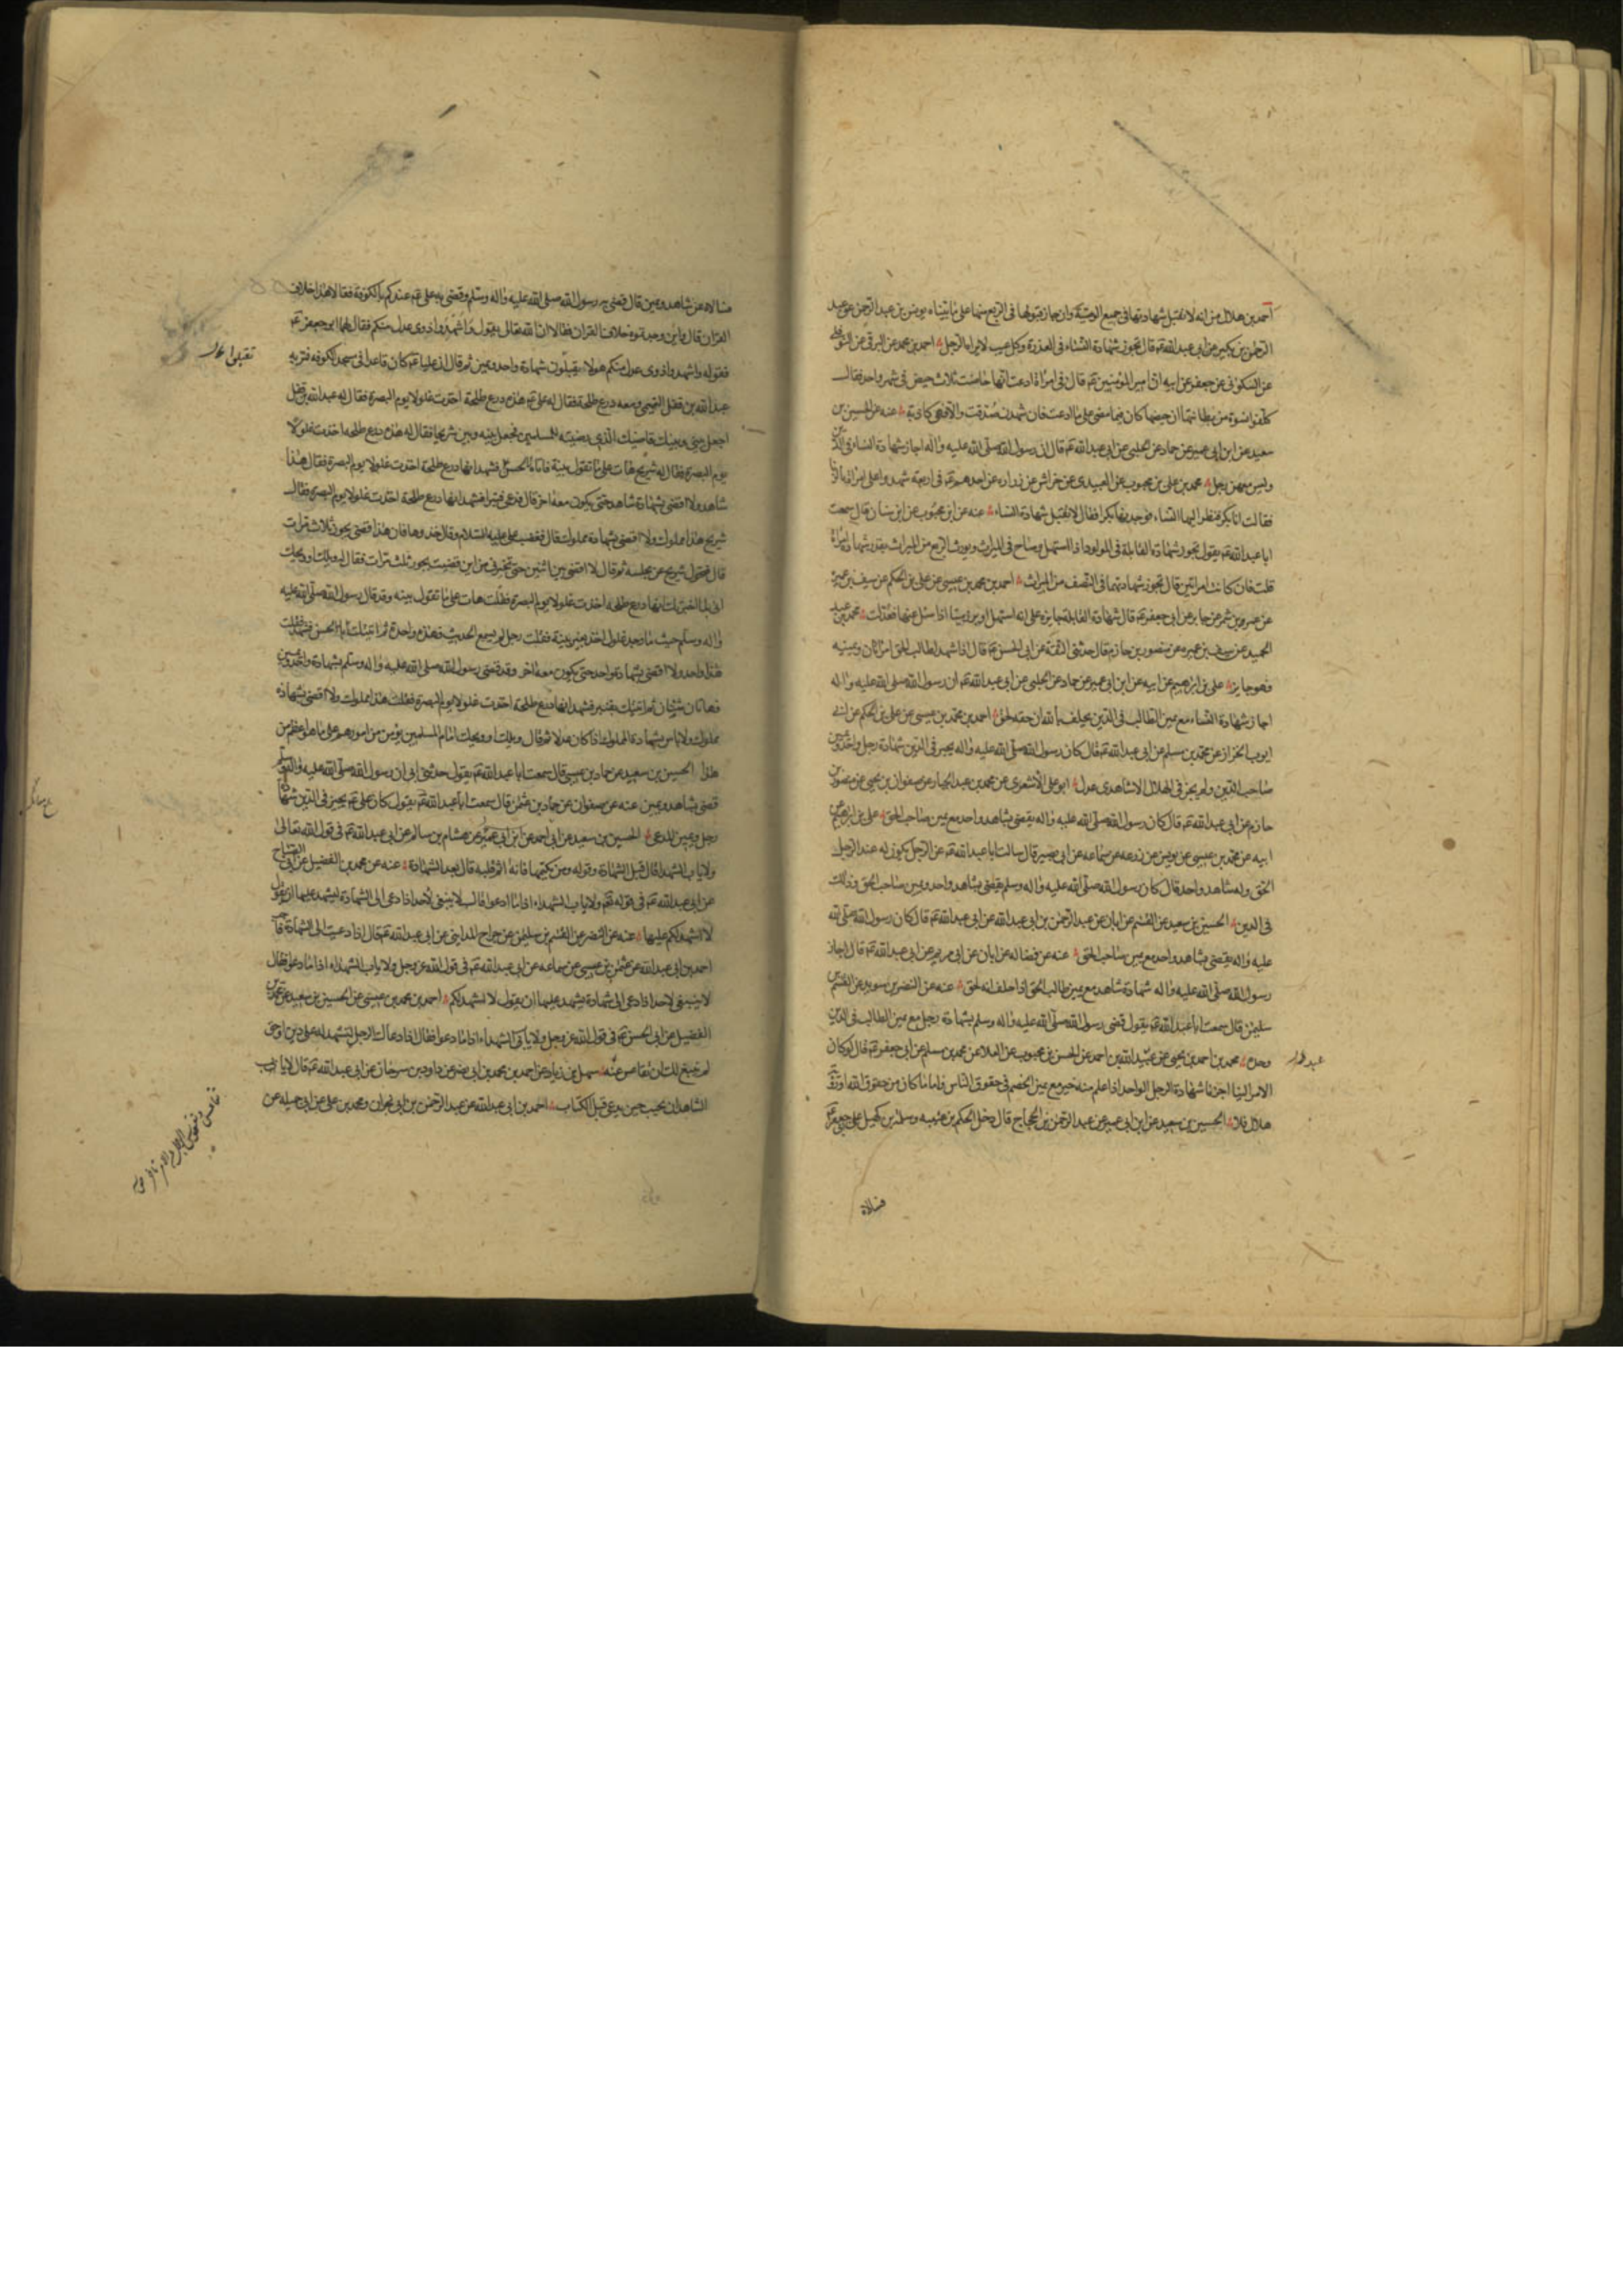 احمد بن هلال من انه لا تقبل شهادتها فى جميع الوصية وان جاز قبولها فى الربع منها على ما بيناه يونس بن عبد الرحمن عن عبد
الرحمن بن بكير عن ابى عبد الله ع قال تجوز شهادة النساء فى العذرة وكل عيب لا يراه الرجل احمد بن محمد عن البرقى عن النوفلى
عن السكونى عن جعفر عن ابيه ان امير المؤمنين ع قال فى امراة ادعت انها حاضت ثلاث حيض فى شهر واحد فقال
كلفوا نسوة من بطانتها ان حيضها كان فيما مضى على ما ادعت فان شهدن صدقت والا فهى كاذبة عنه عن الحسين بن
سعيد عن ابن ابى عمير عن حماد عن الحلبى عن ابى عبد الله ع قال ان رسول الله صلى الله عليه واله اجاز شهادة النساء فى الدين
وليس معهن رجل محمد بن على بن محبوب عن العبيدى عن خراش عن زرارة عن احدهما ع فى اربعة شهدوا على امراة بالزنا
فقالت انا بكر فنظر اليها النساء فوجدنها بكرا فقال لا تقبل شهادة النساء عنه عن ابن محبوب عن ابن سنان قال سمعت
ابا عبد الله ع يقول تجوز شهادة القابلة فى المولود اذا استهل وصاح فى الميراث ويورث الربع من الميراث بقدر شهادة امراة
قلت فان كانتا امراتين قال تجوز شهادتهما فى النصف من الميراث احمد بن محمد بن عيسى عن على بن الحكم عن سيف بن عميرة
عن عمرو بن شمر عن جابر عن ابى جعفر ع قال شهادة القابلة جايزة على انه استهل او برز ميتا اذا سئل عنها فعدلت محمد بن عبد
الحميد عن سيف بن عميرة عن منصور بن حازم قال حدثنى الثقة عن ابى الحسن ع قال اذا شهد لطالب الحق امراتان ويمينه
فهو جايز على بن ابراهيم عن ابيه عن ابن ابى عمير عن حماد عن الحلبى عن ابى عبد الله ع ان رسول الله صلى الله عليه واله
اجاز شهادة النساء مع يمين الطالب فى الدين يحلف بالله ان حقه لحق احمد بن محمد بن عيسى عن على بن الحكم عن ابى
ايوب الخزاز عن محمد بن مسلم عن ابى عبد الله ع قال كان رسول الله صلى الله عليه واله يجيز فى الدين شهادة رجل واحد ويمين
صاحب الدين ولم يجز فى الهلال الا شاهدى عدل ابو على الاشعرى عن محمد بن عبد الجبار عن صفوان بن يحيى عن منصور بن
حازم عن ابى عبد الله ع قال كان رسول الله صلى الله عليه واله يقضى بشاهد واحد مع يمين صاحب الحق على بن ابراهيم عن
ابيه عن محمد بن عيسى عن يونس عن زرعه عن سماعه عن ابى بصير قال سالت ابا عبد الله ع عن الرجل يكون له عند الرجل
الحق وله شاهد واحد قال كان رسول الله صلى الله عليه واله وسلم يقضى بشاهد واحد ويمين صاحب الحق وذلك
فى الدين الحسين بن سعيد عن القسم عن ابان عن عبد الرحمن بن ابى عبد الله عن ابى عبد الله ع قال كان رسول الله صلى الله
عليه واله يقضى بشاهد واحد مع يمين صاحب الحق عنه عن فضاله عن ابان عن ابى مريم عن ابى عبد الله ع قال اجاز
رسول الله صلى الله عليه واله شهادة شاهد مع يمين طالب الحق اذا حلف انه لحق عنه عن النضر بن سويد عن القسم بن
سليمن قال سمعت ابا عبد الله ع يقول قضى رسول الله صلى الله عليه واله وسلم بشهادة رجل مع يمين الطالب فى الدين
وحده محمد بن احمد بن يحيى عن عبيد الله بن احمد عن الحسن بن محبوب عن العلا عن محمد بن مسلم عن ابى جعفر ع قال لو كان
الامر الينا اجزنا شهادة الرجل الواحد اذا علم منه خير مع يمين الخصم فى حقوق الناس فاما ما كان من حقوق الله او رؤية
هلال فلا الحسين بن سعيد عن ابن ابى عمير عن عبد الرحمن بن الحجاج قال دخل الحكم بن عتيبه وسلمة بن كهيل على ابى جعفر ع
فسالاه
فسالاه عن شاهد ويمين قال قضى به رسول الله صلى الله عليه واله وسلم وقضى به على ع عندكم بالكوفة فقالا هذا خلاف
القران قال واين وجدتموه خلاف القران فقالا ان الله تعالى يقول واشهدوا ذوى عدل منكم فقال لهما ابو جعفر ع
فقوله واشهدوا ذوى عدل منكم هو لا تقبلون شهادة واحد ويمين ثم قال ان عليا ع كان قاعدا فى مسجد الكوفه فمر به
عبد الله بن قفل التميمى ومعه درع طلحة فقال له على ع هذه درع طلحة اخذت غلولا يوم البصرة فقال له عبد الله بن قفل
اجعل بينى وبينك قاضيك الذى رضيته للمسلمين فجعل بينه وبين شريحا فقال له هذه درع طلحه اخذت غلولا
يوم البصرة فقال له شريح هات على ما تقول بينة فاتاه الحسن فشهد انها درع طلحة اخذت غلولا يوم البصرة فقال هذا
شاهد ولا اقضى بشهادة شاهد حتى يكون معه اخر قال فدعى قنبرا فشهد انها درع طلحة اخذت غلولا يوم البصرة فقال
شريح هذا مملوك ولا اقضى بشهادة مملوك قال فغضب على عليه السلام وقال خذوها فان هذا قضى بجور ثلاث مرات
قال فتحول شريح عن مجلسه ثم قال لا اقضى بين اثنين حتى تخبرنى من اين قضيت بجور ثلث مرات فقال له ويلك او ويحك
انى لما اخبرتك انها درع طلحه اخذت غلولا يوم البصرة فقلت هات على ما تقول بينه وقد قال رسول الله صلى الله عليه
واله وسلم حيث ما وجد غلول اخذ بغير بينة فقلت رجل لم يسمع الحديث فهذه واحدة ثم اتيتك بالحسن فشهد فقلت
هذا واحد ولا اقضى بشهادة واحد حتى يكون معه اخر وقد قضى رسول الله صلى الله عليه واله وسلم بشهادة واحد ويمين
فهاتان ثنتان ثم اتيتك بقنبر فشهد انها درع طلحة اخذت غلولا يوم البصرة فقلت هذا مملوك ولا اقضى بشهادة
مملوك ولا باس بشهادة المملوك اذا كان عدلا ثم قال ويلك او ويحك امام المسلمين يؤمن من امورهم على ما هو اعظم من
هذا الحسين بن سعيد عن حماد بن عيسى قال سمعت ابا عبد الله ع يقول حدثنى ابى ان رسول الله صلى الله عليه واله وسلم
قضى بشاهد ويمين عنه عن صفوان عن حماد بن عثمن قال سمعت ابا عبد الله ع يقول كان على ع يجيز فى الدين شهادة
رجل ويمين المدعى الحسين بن سعيد عن ابى احمد عن ابن ابى عمير عن هشام بن سالم عن ابى عبد الله ع فى قول الله تعالى
ولا ياب الشهدا قال قبل الشهادة وقوله ومن يكتمها فانه اثم قلبه قال بعد الشهادة عنه عن محمد بن الفضيل عن ابى الصباح
عن ابى عبد الله ع فى قوله تعالى ولا ياب الشهداء اذا ما دعوا قال لا ينبغى لاحد اذا دعى الى الشهادة ليشهد عليها ان يقول
لا اشهد لكم عليها عنه عن النضر عن القسم بن سليمن عن جراح المداينى عن ابى عبد الله ع قال اذا دعيت الى الشهادة فاجب
احمد بن ابى عبد الله عن عثمن بن عيسى عن سماعه عن ابى عبد الله ع فى قول الله عز وجل ولا ياب الشهداء اذا ما دعوا فقال
لا ينبغى لاحد اذا دعى الى شهادة يشهد عليها ان يقول لا اشهد لكم احمد بن محمد بن عيسى عن الحسين بن سعيد عن محمد بن
الفضيل عن ابى الحسن ع فى قول الله عز وجل ولا ياب الشهداء اذا ما دعوا فقال اذا دعاك الرجل لتشهد له على دين او حق
لم ينبغ لك ان تقاعس عنه سهل بن زياد عن احمد بن محمد بن ابى نصر عن داود بن سرحان عن ابى عبد الله ع قال لا ياب
الشاهد ان يجيب حين يدعى قبل الكتاب احمد بن ابى عبد الله عن عبد الرحمن بن ابى نجران ومحمد بن على عن ابى جميله عن